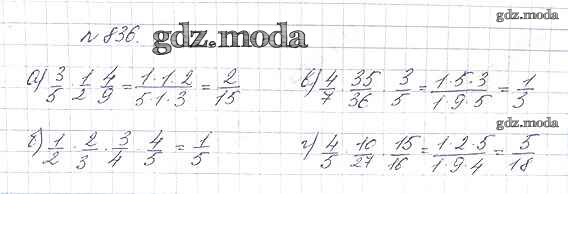 № 836. gdz.moda
а) 3/5 · 1/2 · 4/9 = 1·1·2/5·1·3 = 2/15 в) 4/7 · 35/36 · 3/5 = 1·5·3/1·9·5 = 1/3
gdz.moda
б) 1/2 · 2/3 · 3/4 · 4/5 = 1/5 г) 4/5 · 10/27 · 15/16 = 1·2·5/1·9·4 = 5/18
gdz.moda